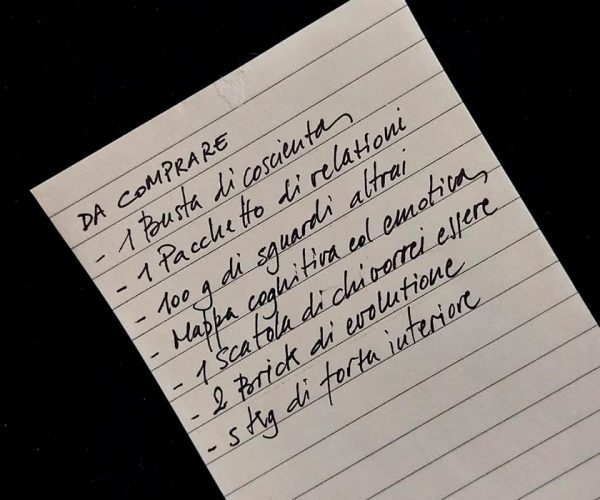 DA COMPRARE
- 1 Busta di coscienza
- 1 Pacchetto di relazioni
- 100 g di sguardi altrui
- Mappa cognitiva ed emotiva
- 1 Scatola di chi vorrei essere
- 2 Brick di evoluzione
- 5 Kg di forza interiore